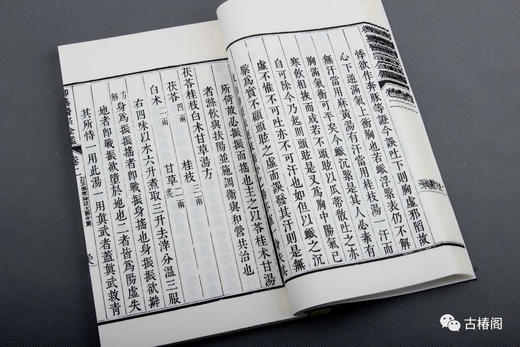 悸欲作奔豚等證今誤吐下則胸虛邪陷故
心下逆滿氣上衝胸也若脈浮緊表仍不解
無汗當用麻黃湯有汗當用桂枝湯一汗而
胸滿氣衝可平矣今脈沉緊是其人必素有
寒飲相挾而成若不頭眩以瓜蒂散吐之亦
自可除今乃起則頭眩是又為胸中陽氣已
虛不惟不可吐亦不可汗也如但以脈之沉
緊為實不顧頭眩之虛而誤發其汗則是無
所倚故必振振而搖也主之以苓桂朮甘湯
者滌飲與扶陽並施調衛與和營共治也
茯苓桂枝白朮甘草湯方
茯苓四兩 桂枝三兩
白朮 甘草炙
右四味以水六升煮取三升去滓分溫三服
方解
身為振振搖者即戰振身搖也身振振欲擗
地者即戰振欲墮於地也二者皆為陽虛失
其所恃一用此湯一用真武者蓋真武救青
古椿阁